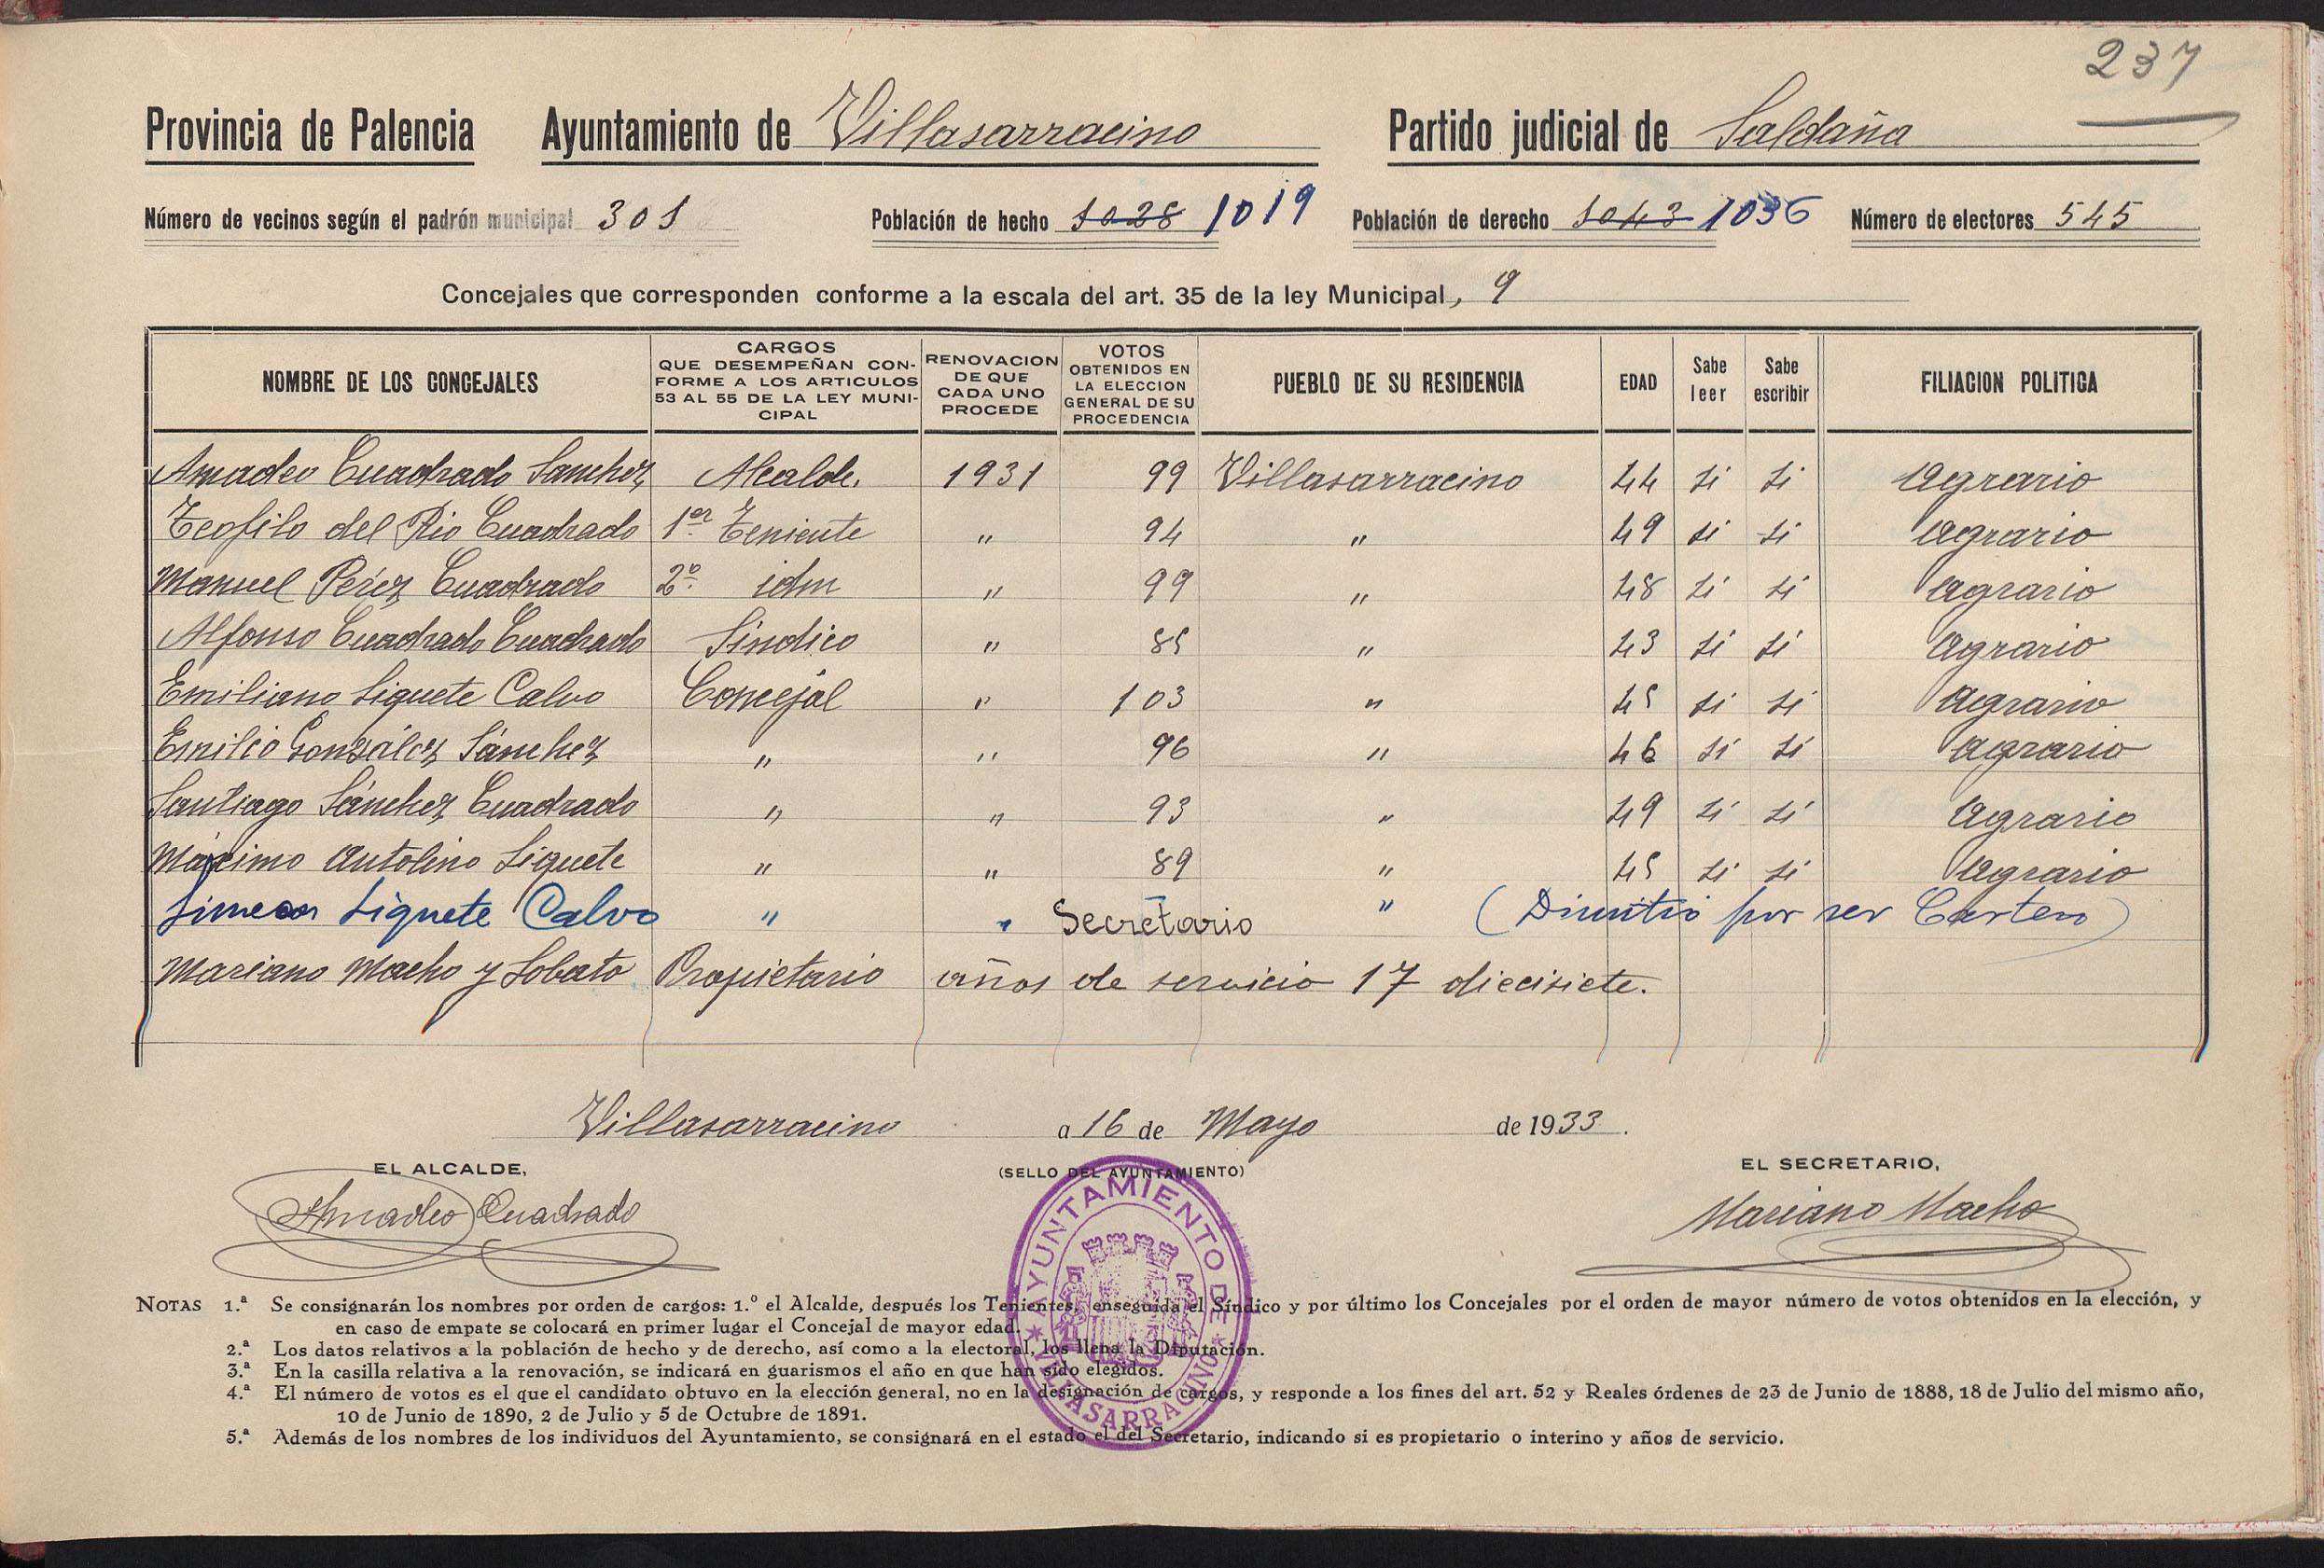 237
Provincia de Palencia Ayuntamiento de Villasarracino Partido judicial de Saldaña
Número de vecinos según el padrón municipal 301 Población de hecho 1028 1019 Población de derecho 1043 1036 Número de electores 545
Concejales que corresponden conforme a la escala del art. 35 de la ley Municipal, 9
NOMBRE DE LOS CONCEJALES CARGOS QUE DESEMPEÑAN CONFORME A LOS ARTICULOS 53 AL 55 DE LA LEY MUNICIPAL RENOVACION DE QUE CADA UNO PROCEDE VOTOS OBTENIDOS EN LA ELECCION GENERAL DE SU PROCEDENCIA PUEBLO DE SU RESIDENCIA EDAD Sabe leer Sabe escribir FILIACION POLITICA
Amadeo Cuadrado Sanchez Alcalde. 1931 99 Villasarracino 44 si si Agrario
Teofilo del Rio Cuadrado 1er Teniente " 94 " 49 si si Agrario
Manuel Perez Cuadrado 2º idm " 99 " 48 si si Agrario
Alfonso Cuadrado Cuadrado Sindico " 85 " 43 si si Agrario
Emiliano Siguete Calvo Concejal " 103 " 45 si si Agrario
Emilio González Sánchez " " 96 " 46 si si Agrario
Santiago Sánchez Cuadrado " " 93 " 49 si si Agrario
Máximo Antolino Siguete " " 89 " 45 si si Agrario
Simeon Siguete Calvo " " " (Dimitió por ser Cartero)
Secretario
Mariano Macho y Lobato Propietario años de servicio 17 diecisiete.
Villasarracino a 16 de Mayo de 1933.
EL ALCALDE, (SELLO DEL AYUNTAMIENTO) EL SECRETARIO,
Amadeo Cuadrado Mariano Macho
AYUNTAMIENTO DE VILLASARRACINO
NOTAS 1.ª Se consignarán los nombres por orden de cargos: 1.º el Alcalde, después los Tenientes, enseguida el Síndico y por último los Concejales por el orden de mayor número de votos obtenidos en la elección, y
en caso de empate se colocará en primer lugar el Concejal de mayor edad.
2.ª Los datos relativos a la población de hecho y de derecho, así como a la electoral, los llena la Diputación.
3.ª En la casilla relativa a la renovación, se indicará en guarismos el año en que han sido elegidos.
4.ª El número de votos es el que el candidato obtuvo en la elección general, no en la designación de cargos, y responde a los fines del art. 52 y Reales órdenes de 23 de Junio de 1888, 18 de Julio del mismo año,
10 de Junio de 1890, 2 de Julio y 5 de Octubre de 1891.
5.ª Además de los nombres de los individuos del Ayuntamiento, se consignará en el estado el del Secretario, indicando si es propietario o interino y años de servicio.